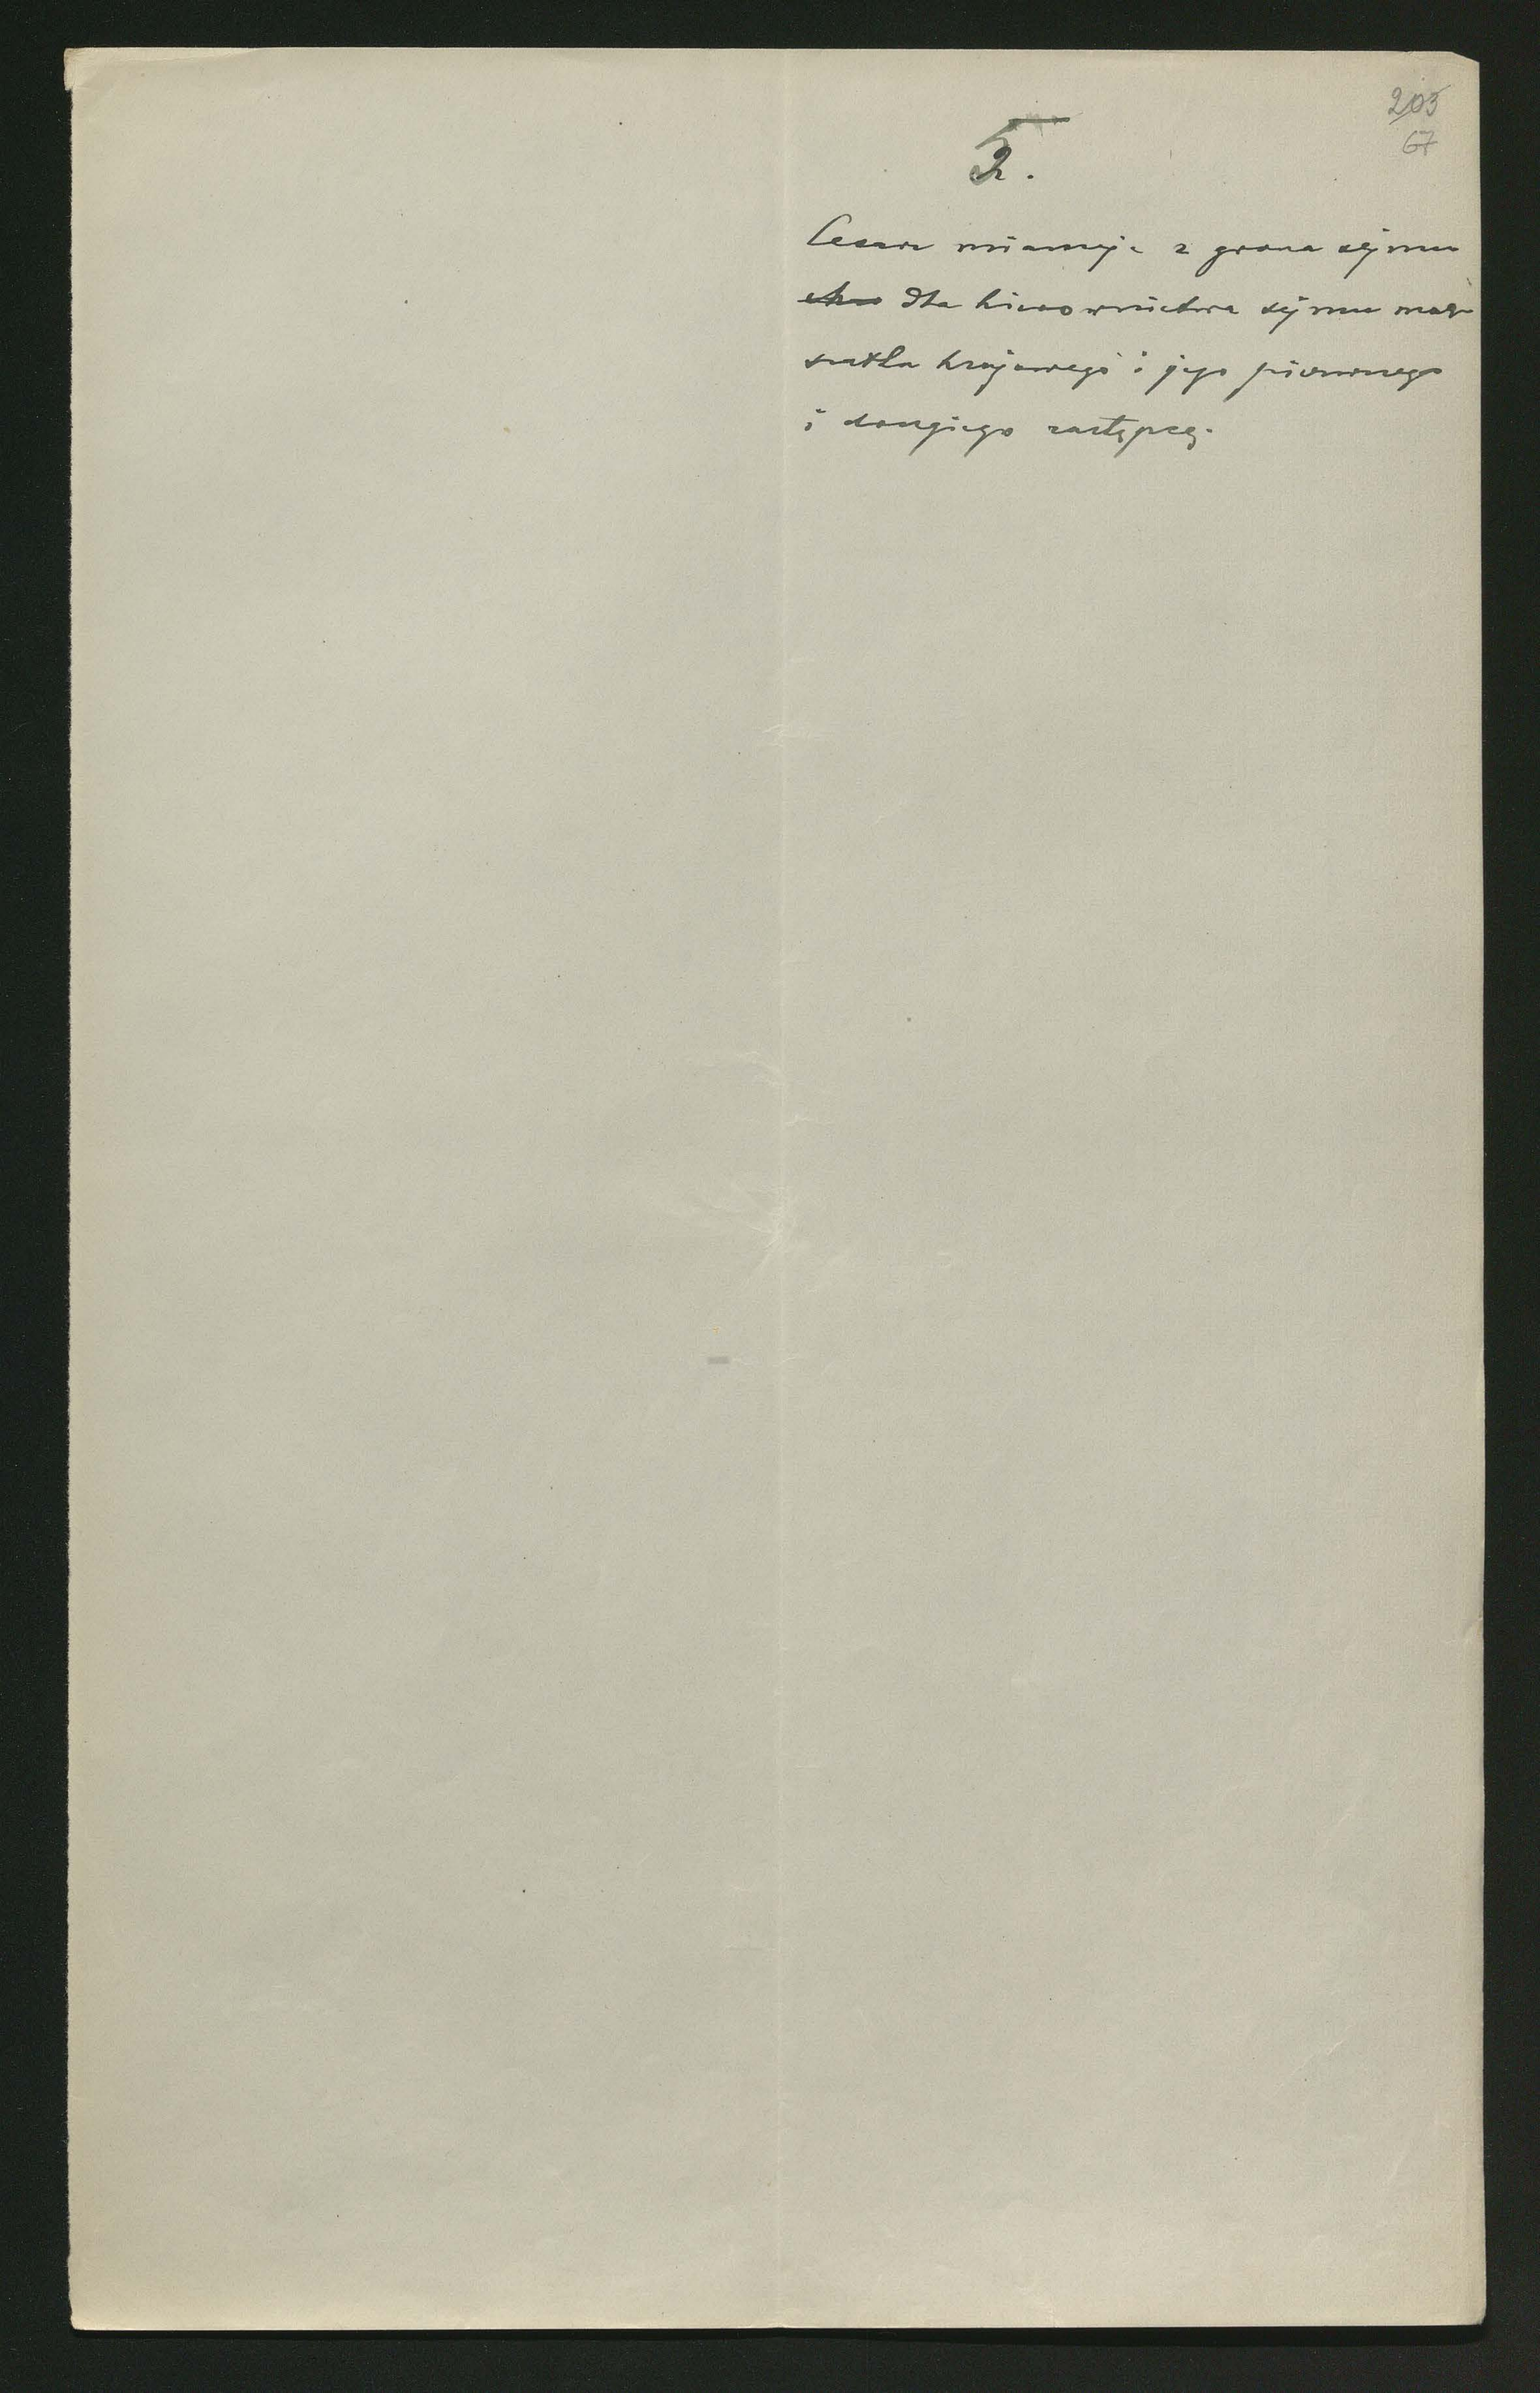 203
67
5.
Cesarz mianuje z grona sejmu
dla kierownictwa sejmu mar-
szałka krajowego i jego pierwszego
i drugiego zastępcę.